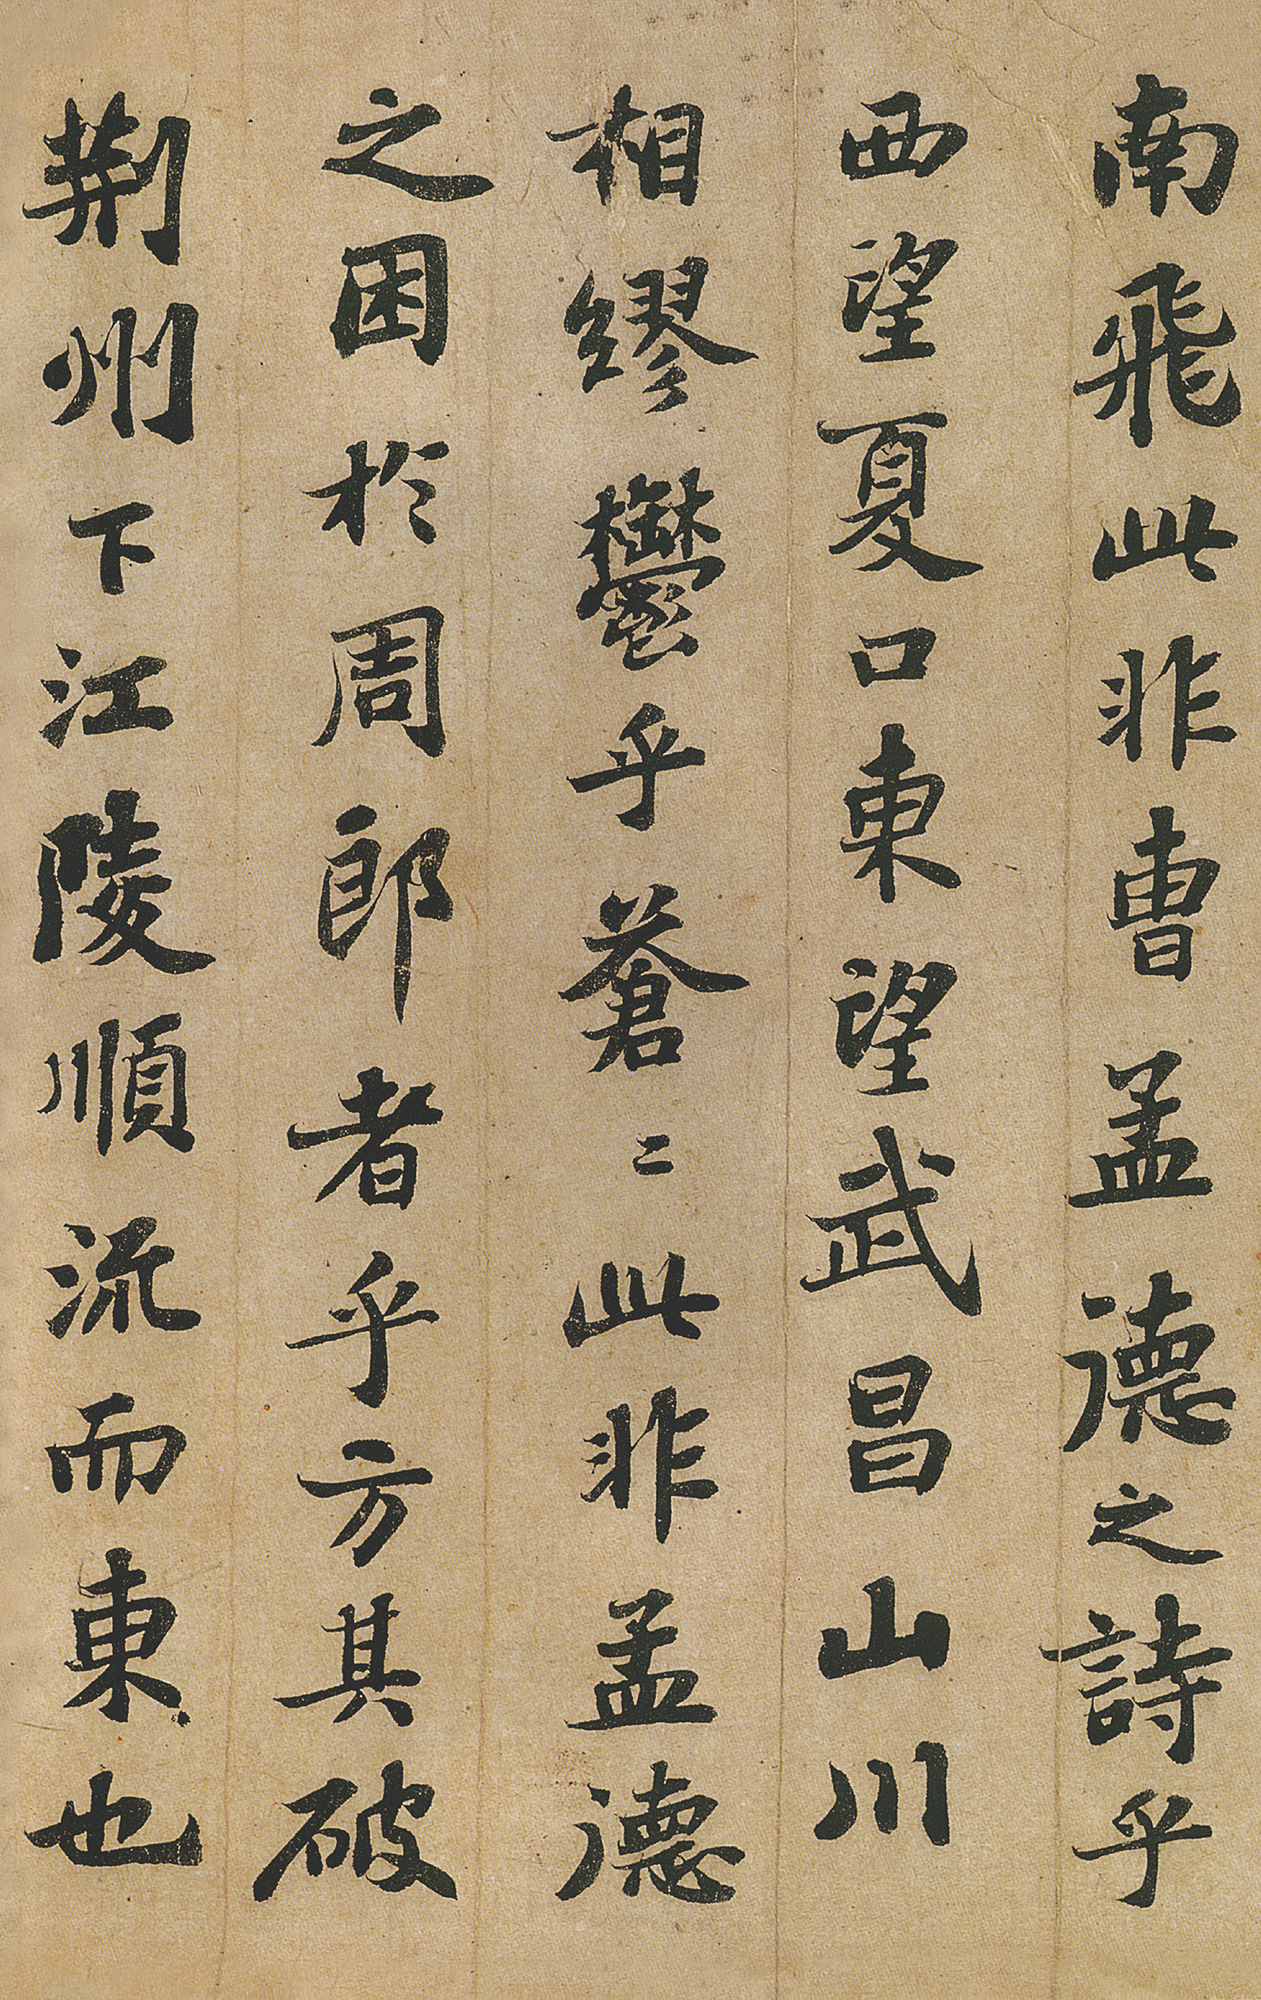 南飛此非曹孟德之詩乎
西望夏口東望武昌山川
相繆鬱乎蒼二此非孟德
之困於周郎者乎方其破
荆州下江陵順流而東也